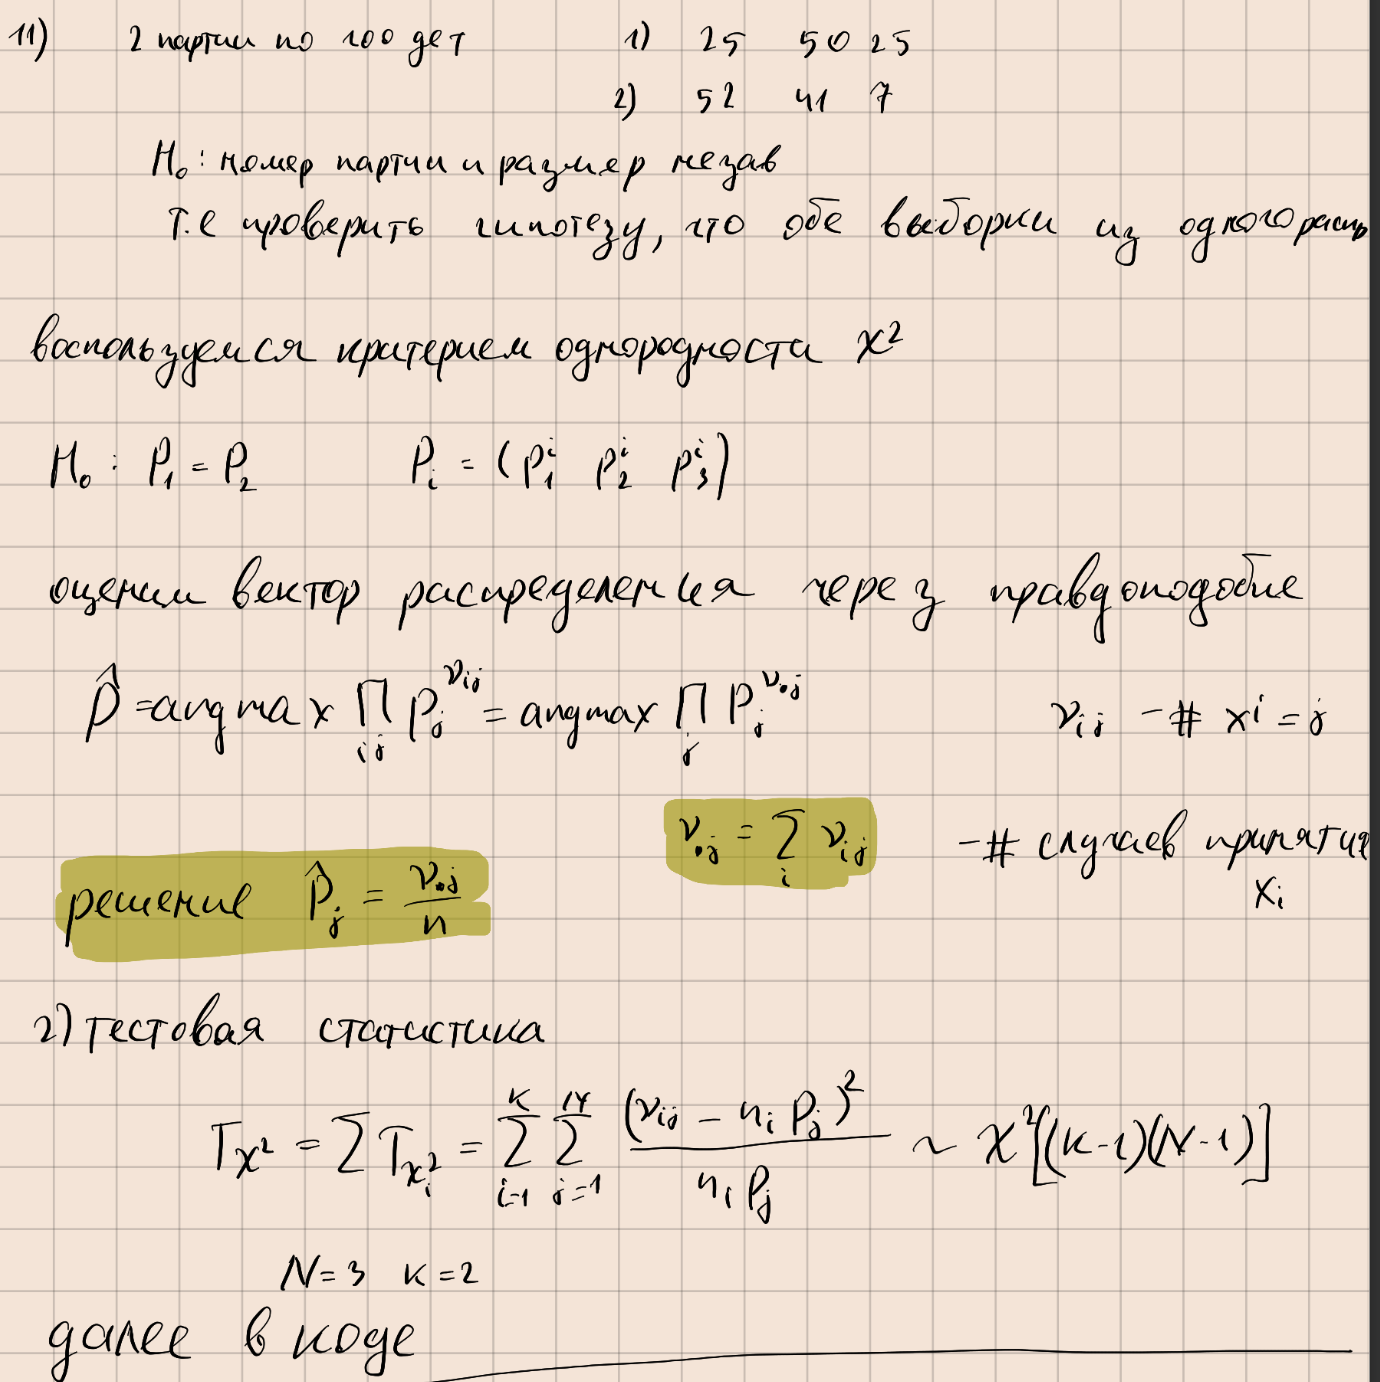 11) 2 партии по 100 дет 1) 25 50 25
2) 52 41 7
H₀: номер партии и размер незав
т.е проверить гипотезу, что обе выборки из одного распр
воспользуемся критерием однородности χ²
H₀: P₁ = P₂ Pᵢ = (p₁ⁱ p₂ⁱ p₃ⁱ)
оценим вектор распределения через правдоподобие
P̂ = argmax ∏ᵢⱼ Pⱼ^νᵢⱼ = argmax ∏ⱼ Pⱼ^ν•ⱼ νᵢⱼ - # xⁱ = j
ν•ⱼ = Σᵢ νᵢⱼ - # случаев принятия xᵢ
решение P̂ⱼ = ν•ⱼ / n
2) тестовая статистика
T_χ² = Σ T_χ²ᵢ = Σᵢ₌₁ᴷ Σⱼ₌₁ᴺ (νᵢⱼ - nᵢ Pⱼ)² / nᵢ Pⱼ ~ χ²[(K-1)(N-1)]
N = 3 K = 2
далее в коде